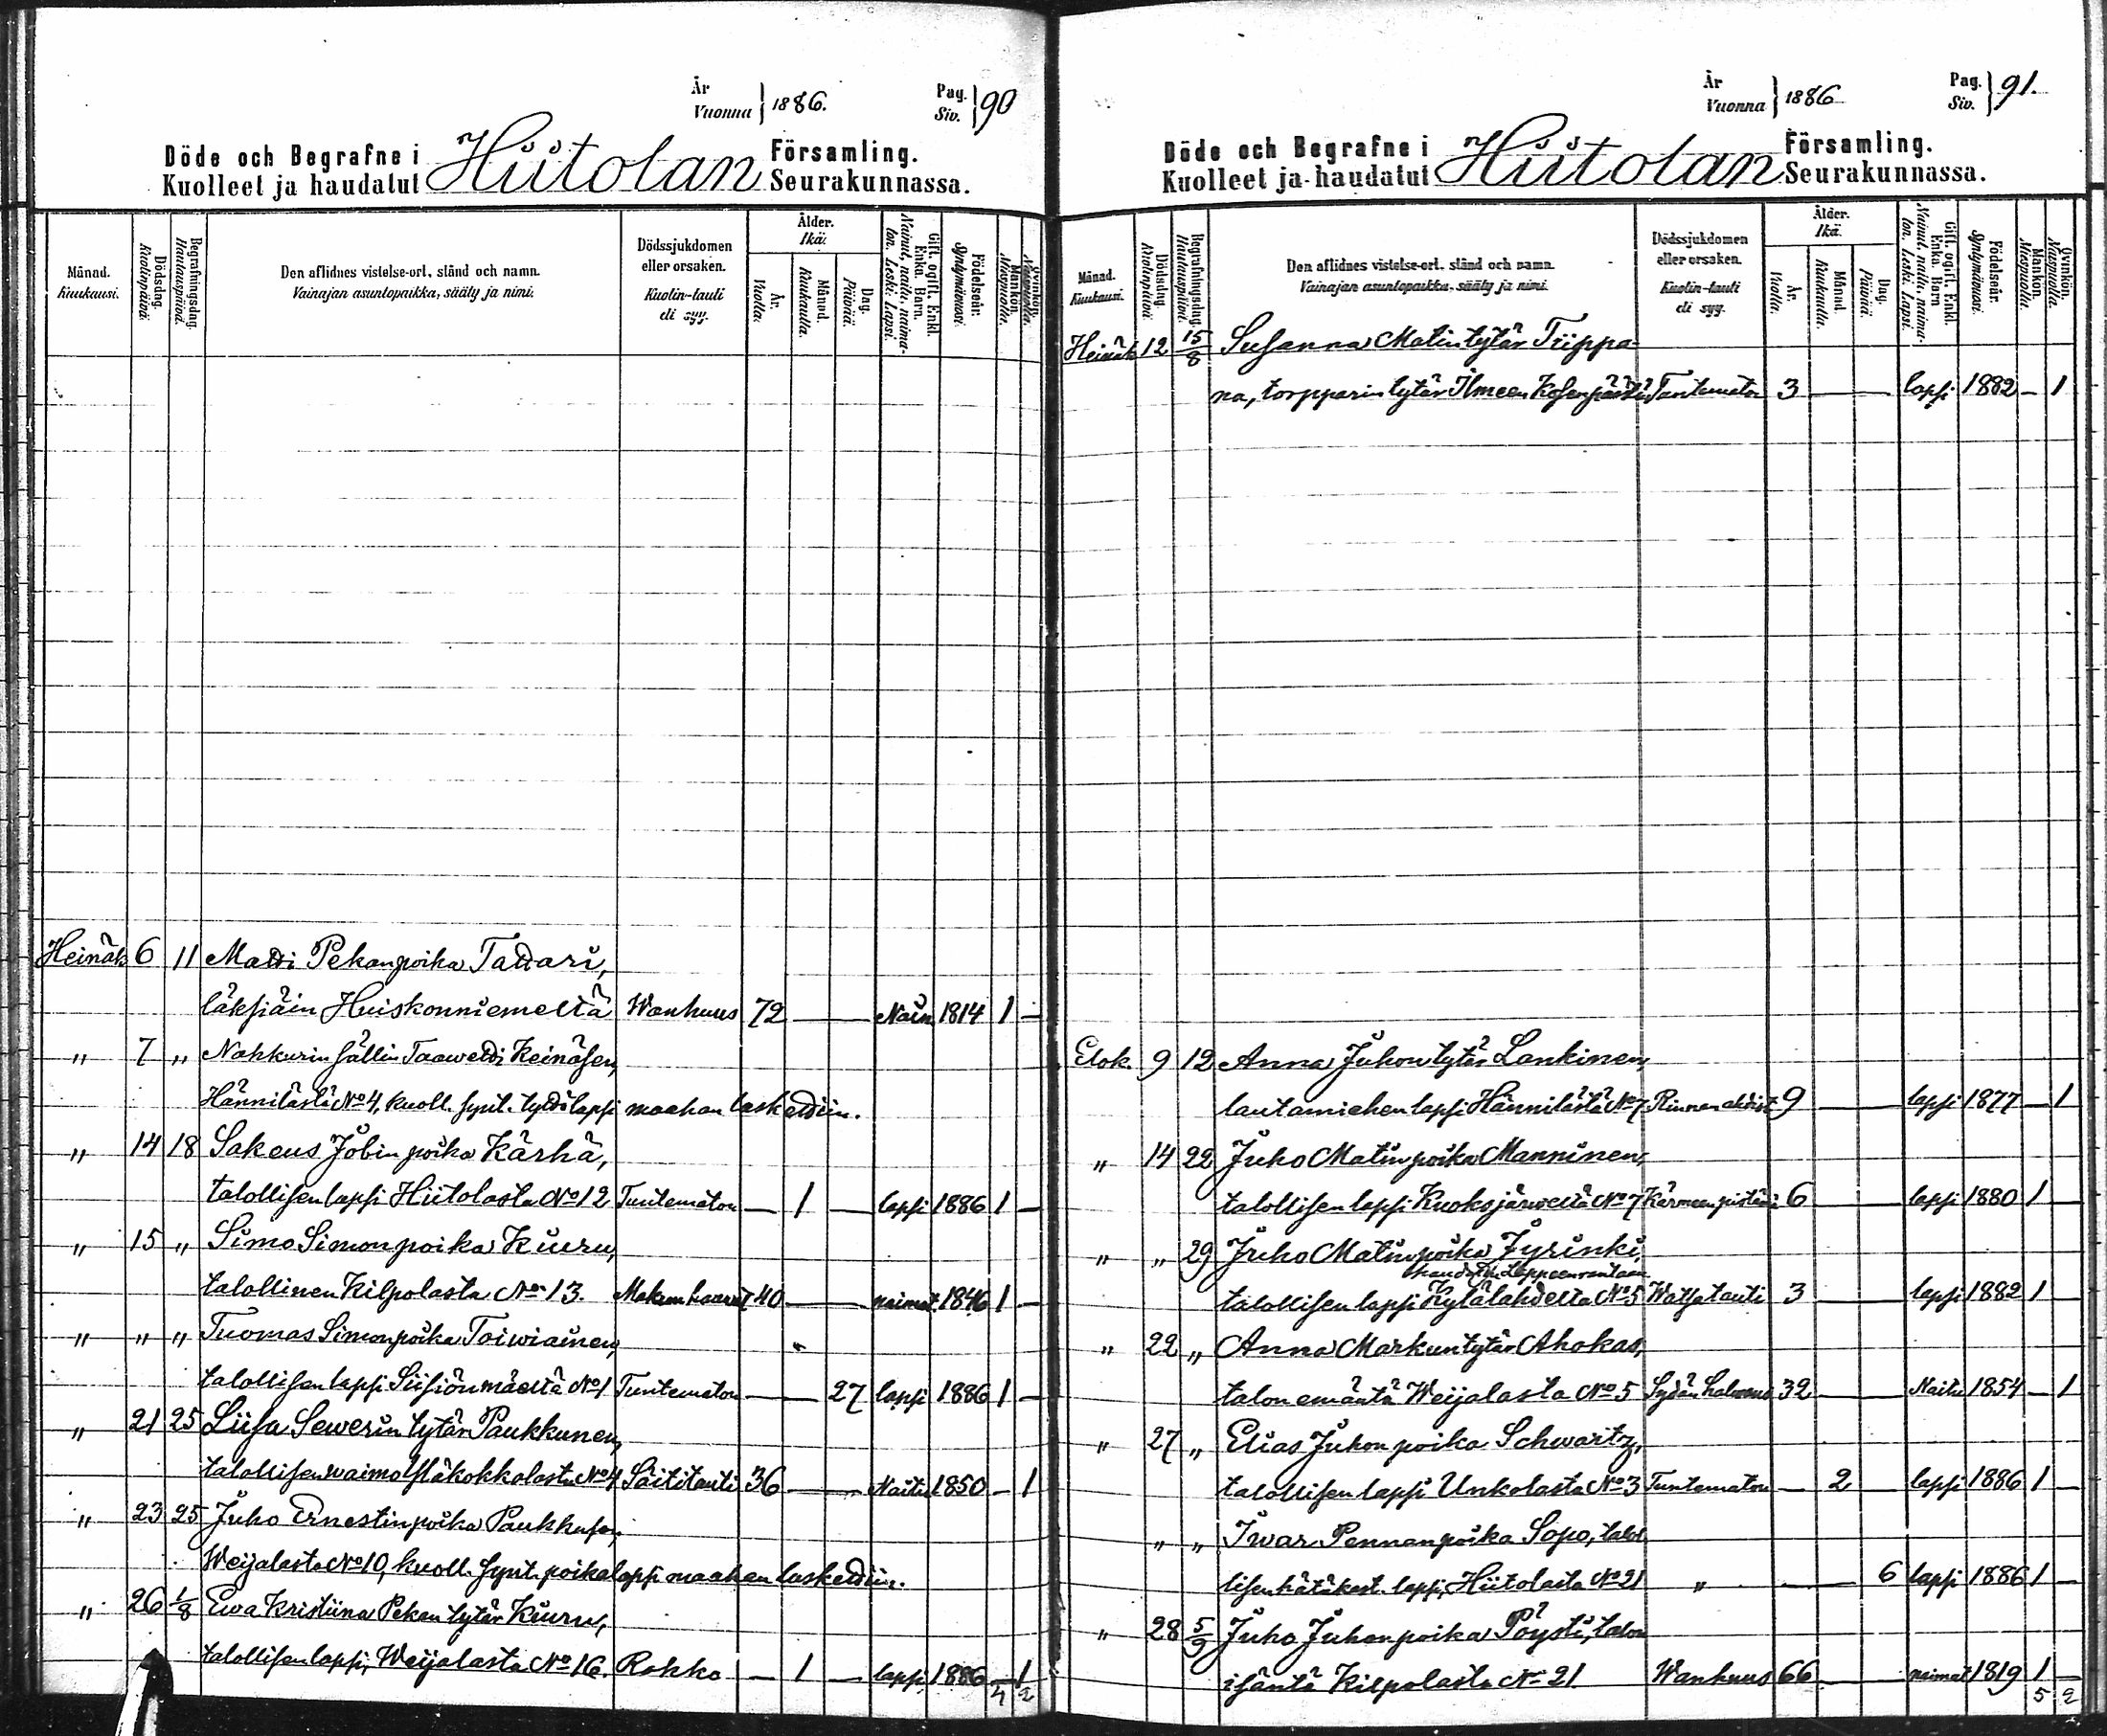 År
Vuonna } 1886.
Pag.
Siv. } 90
Döde och Begrafne i
Kuolleet ja haudatut
Hiitolan
Församling.
Seurakunnassa.
Månad.
Kuukausi.
Dödsdag.
Kuolinpäivä.
Begrafningsdag.
Hautauspäivä.
Den aflidnes vistelse-ort, stånd och namn.
Vainajan asuntopaikka, sääty ja nimi.
Dödssjukdomen
eller orsaken.
Kuolin-tauti
eli syy.
Ålder.
Ikä.
År.
Vuotta.
Månad.
Kuukautta.
Dag.
Päivää.
Gift, ogift. Enkl.
Enka. Barn.
Nainut, naitu, naima-
ton. Leski. Lapsi.
Födelseår.
Syntymävuosi.
Mankön.
Miespuolia.
Qvinkön.
Naispuolia.
Heinäk 6 11 Matti Pekanpoika Tattari,
läksiäin Huiskonniemeltä Wanhuus 72 — — Nain. 1814 1 —
" 7 " Nahkurin sällin Taawetti Keinäsen,
Hännilästä No 4, kuoll. synt. tyttölapsi maahan laskettiin.
" 14 18 Sakeus Jobinpoika Kärhä,
talollisen lapsi Hiitolasta No 12 Tuntematon — 1 — lapsi 1886 1 —
" 15 " Simo Simonpoika Kiuru,
talollinen Kilpolasta No 13. 40 — — naimat. 1846 1 —
" " " Tuomas Simonpoika Toiwiainen,
talollisen lapsi Siisiönmäeltä No 1 Tuntematon — — 27 lapsi 1886 1 —
" 21 25 Liisa Sewerintytär Paukkunen,
talollisen waimo No 4 36 — — Naitu 1850 — 1
" 23 25 Juho Ernestinpoika Paukkusen,
Weijalasta No 10, kuoll. synt. poikalapsi maahan laskettiin.
" 26 1/8 Ewa Kristiina Pekantytär Kiuru,
talollisen lapsi, Weijalasta No 16. Rokko — 1 — lapsi 1886 — 1
4 2
År
Vuonna } 1886
Pag.
Siv. } 91.
Döde och Begrafne i
Kuolleet ja haudatut
Hiitolan
Församling.
Seurakunnassa.
Månad.
Kuukausi.
Dödsdag.
Kuolinpäivä.
Begrafningsdag.
Hautauspäivä.
Den aflidnes vistelse-ort, stånd och namn.
Vainajan asuntopaikka, sääty ja nimi.
Dödssjukdomen
eller orsaken.
Kuolin-tauti
eli syy.
Ålder.
Ikä.
År.
Vuotta.
Månad.
Kuukautta.
Dag.
Päivää.
Gift, ogift. Enkl.
Enka. Barn.
Nainut, naitu, naima-
ton. Leski. Lapsi.
Födelseår.
Syntymävuosi.
Mankön.
Miespuolia.
Qvinkön.
Naispuolia.
Heinäk 12 15/8 Susanna Matintytär Tiippa-
na, torpparin tytär Ilmeen Tuntematon 3 — — lapsi 1882 — 1
Elok. 9 12 Anna Juhontytär Lankinen,
lautamiehen lapsi Hännilästä No 7 9 — — lapsi 1877 — 1
" 14 22 Juho Matinpoika Manninen,
talollisen lapsi Kuoksjärweltä No 7 Kärmeen pistämä 6 lapsi 1880 1 —
" " 29 Juho Matinpoika Jyrinki,
haudattu Lappeenrantaan
talollisen lapsi Kylälahdelta No 5 Watsatauti 3 lapsi 1882 1 —
" 22 " Anna Markuntytär Ahokas,
talon emäntä Weijalasta No 5 Sydän halwaus 32 Naitu 1854 — 1
" 27 " Elias Juhonpoika Schwartz,
talollisen lapsi Unkolasta No 3 Tuntematon — 2 lapsi 1886 1 —
" " Iwar Pennanpoika Sopo, talol
lisen lapsi, Hiitolasta No 21 " — 6 lapsi 1886 1 —
" 28 5/9 Juho Juhonpoika Pöysti, talon
isäntä Kilpolasta No 21 Wanhuus 66 naimat 1819 1 —
5 2